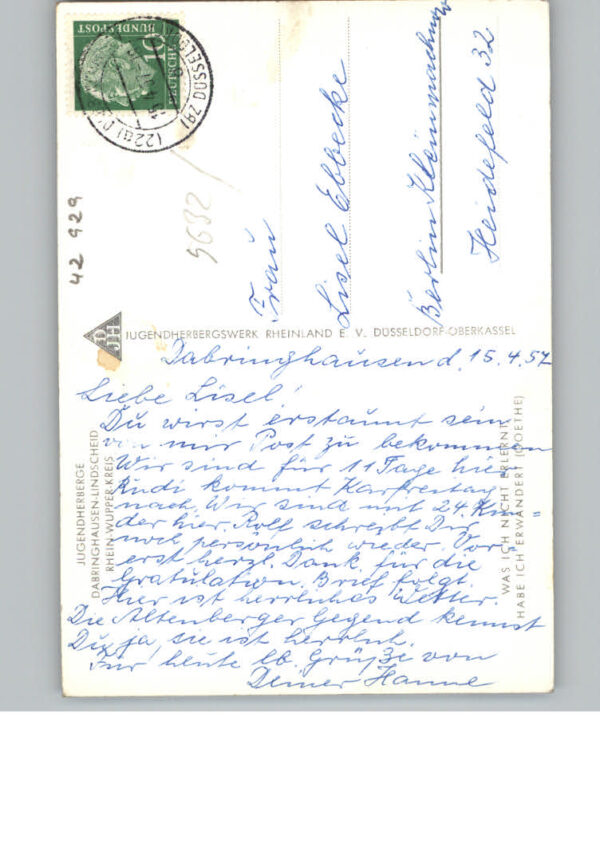 DEUTSCHE
BUNDESPOST
10
(22a) DÜSSELDORF
42 929
5692
Frau
Lisel Ebbecke
Berlin Kleinmachnow
Heidefeld 32
DJH
JUGENDHERBERGSWERK RHEINLAND E. V. DÜSSELDORF-OBERKASSEL
Dabringhausen d. 15.4.57
Liebe Lisel!
Du wirst erstaunt sein
von mir Post zu bekommen
Wir sind für 11 Tage hier
Rudi kommt Karfreitag
nach. Wir sind mit 24 Kin=
der hier. Rolf schreibt Dir
noch persönlich wieder. Vor=
erst herzl. Dank für die
Gratulation. Brief folgt.
Hier ist herrliches Wetter.
Die Altenberger Gegend kennst
Du ja, sie ist herrlich.
Für heute lb. Grüße von
Deiner Hanne
JUGENDHERBERGE
DABRINGHAUSEN-LINDSCHEID
RHEIN-WUPPER-KREIS
WAS ICH NICHT ERLERNT
HABE ICH ERWANDERT (GOETHE)